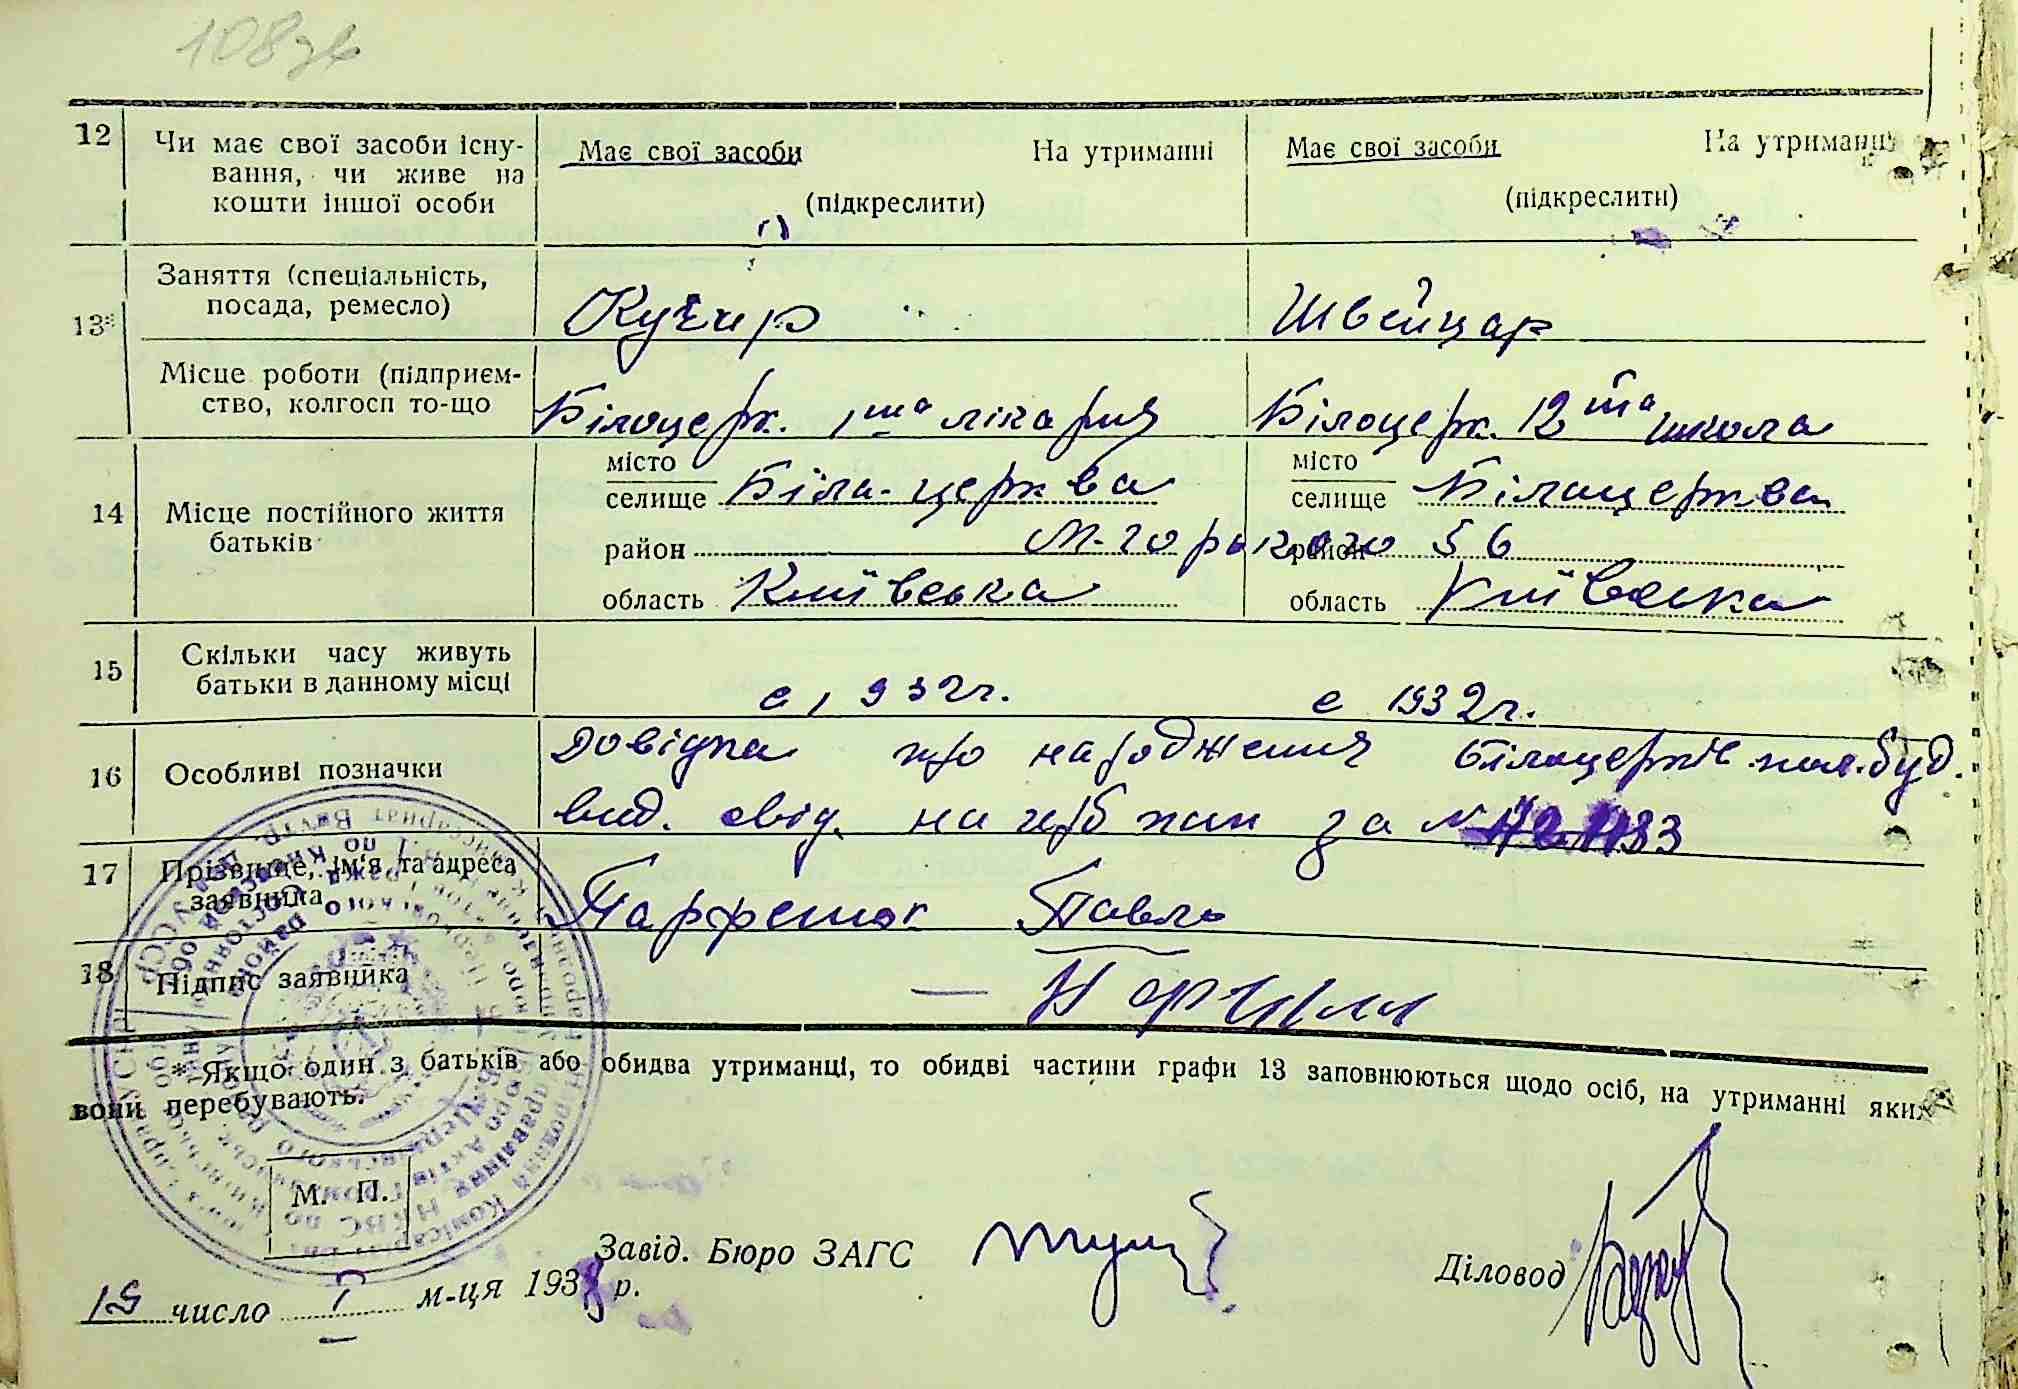 108 зв
12 Чи має свої засоби існу- Має свої засоби На утриманні Має свої засоби На утриманні
вання, чи живе на
кошти іншої особи (підкреслити) (підкреслити)
13* Заняття (спеціальність, посада, ремесло) Кучир Швейцар
Місце роботи (підприєм-
ство, колгосп то-що Білоцерк. 1ша лікарня Білоцерк. 12 та школа
14 Місце постійного життя батьків
місто
селище Біла-церква
місто
селище Білацерква
район М-горького 56 район
область Київська область Київська
15 Скільки часу живуть
батьки в данному місці с 1932 г. с 1932 г.
16 Особливі позначки Довідка про народження Білоцерків. пол. буд.
вид. свід. на
за №
17 Прізвище, ім'я та адреса
заявника Парфенюк Павло
18 Підпис заявника —
* Якщо один з батьків або обидва утриманці, то обидві частини графи 13 заповнюються щодо осіб, на утриманні яких
вони перебувають.
М. П.
Завід. Бюро ЗАГС
Діловод
число м-ця 193 р.